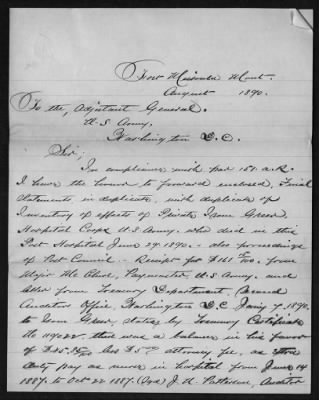 Fort Missoula Mont.
August 1890.
To the, Adjutant General.
U.S. Army.
Washington D.C.
Sir;
In compliance with par 151 a.R.
I have the honor to forward enclosed, Final
Statements, in duplicate, with duplicate of
Inventory of effects of Private Isom Greer,
Hospital Corps U.S. Army. who died in this
Post Hospital June 29. 1890. - also proceedings
of Post Council - Receipt for $161 from
Major Paymaster, U.S. Army. and
letter from Treasury Department, Second
Auditors Office, Washington D.C. Jany 7, 1890.
to Isom Greer, stating by Treasury Certificate
No 119022. there was a balance in his favor
of attorney fee, as
duty pay as nurse in hospital from June 14
1887. to Oct 22 1887. (sgd) J. N. Patterson, Auditor